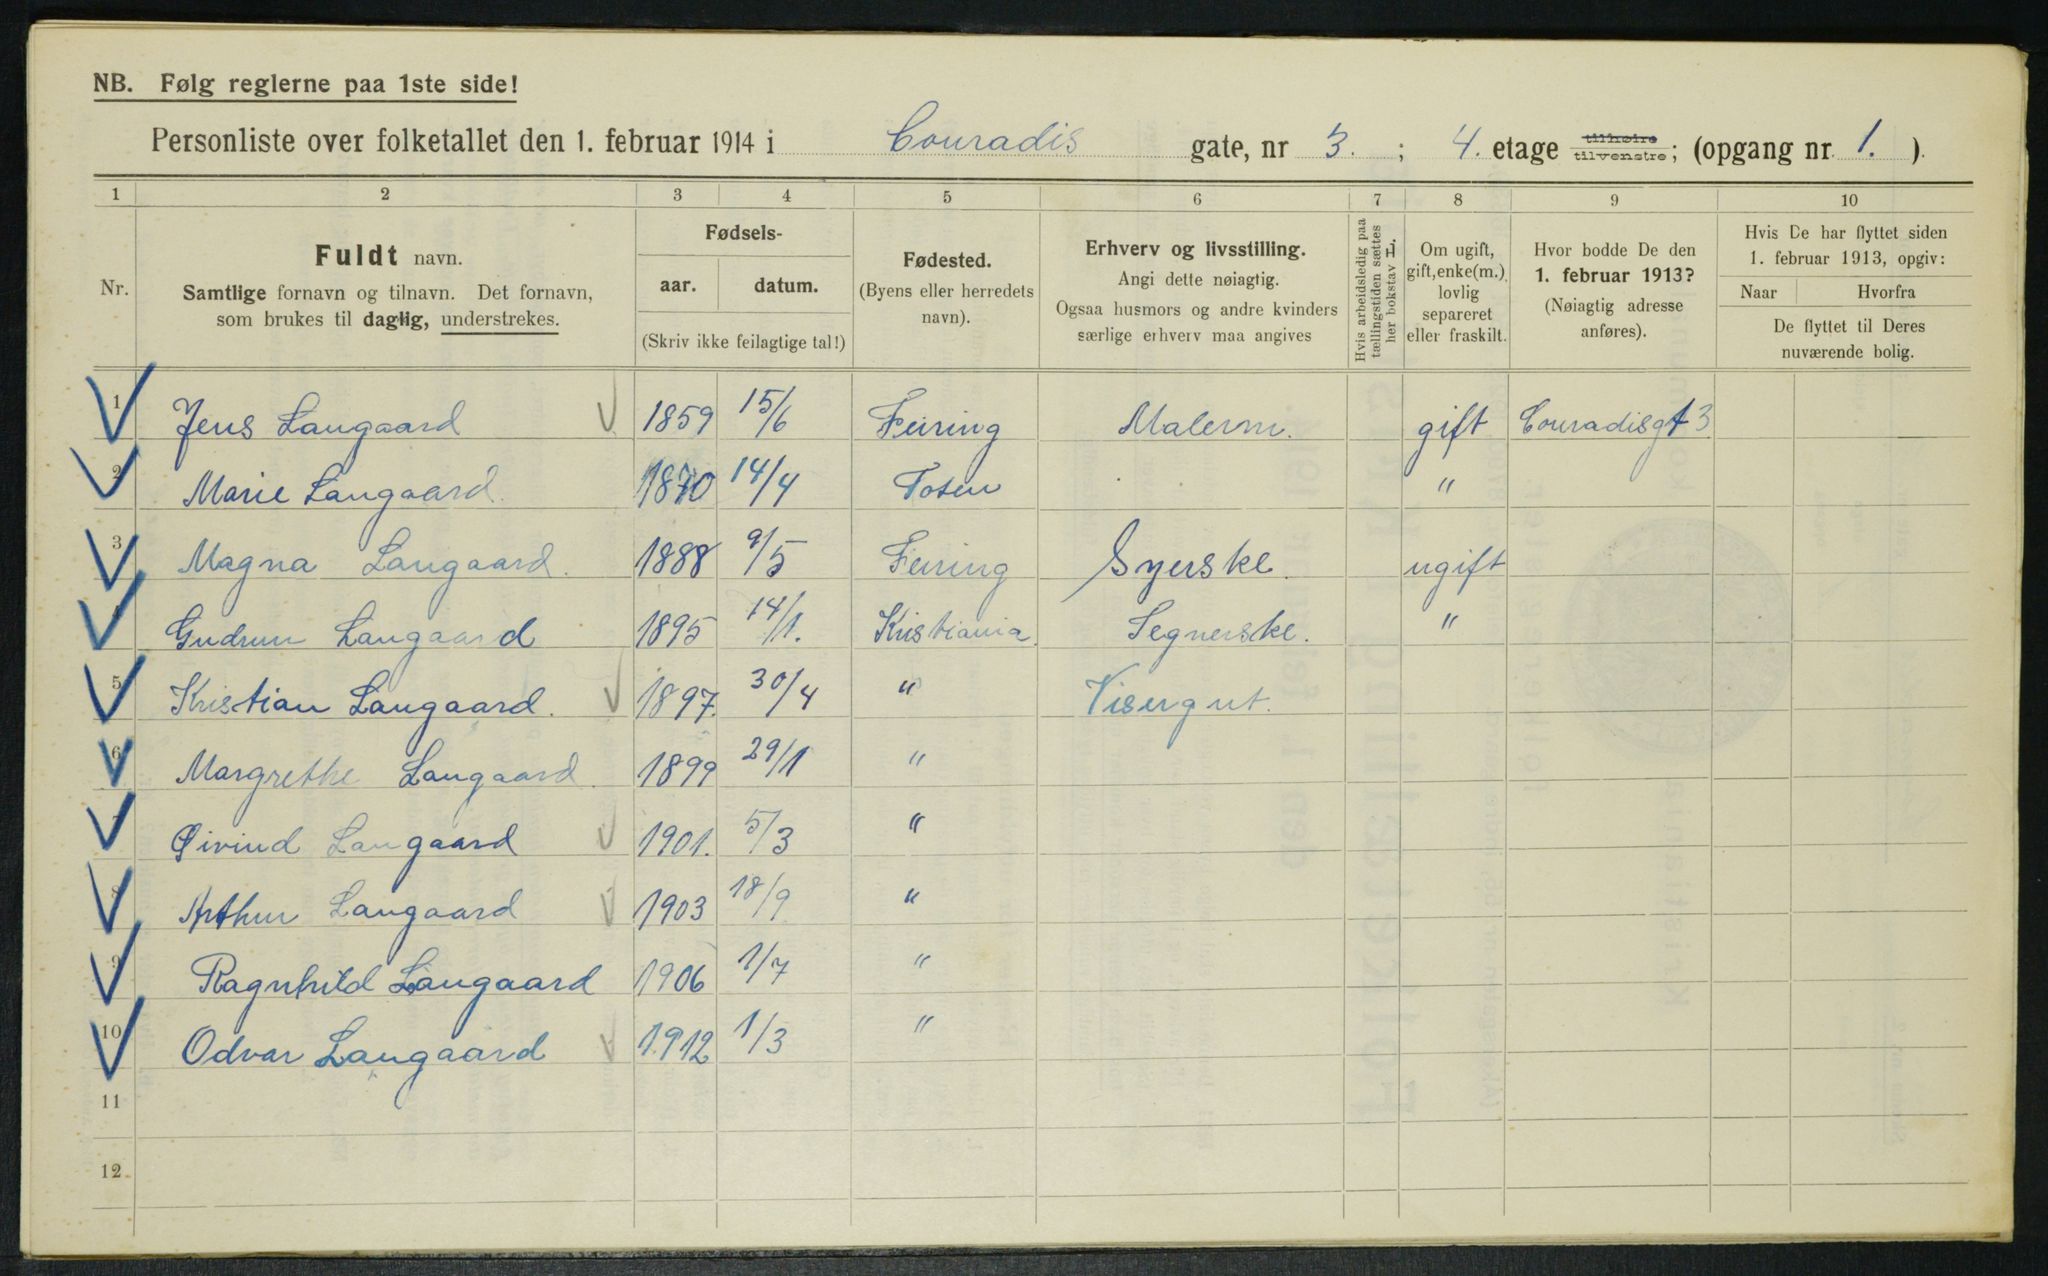 NB. Følg reglerne paa 1ste side!
Personliste over folketallet den 1. februar 1914 i Conradis gate, nr 3. ; 4. etage tilhøire tilvenstre; (opgang nr. 1. ).
1 2 3 4 5 6 7 8 9 10
Nr.
Fuldt navn.
Samtlige fornavn og tilnavn. Det fornavn,
som brukes til daglig, understrekes.
Fødsels-
aar. datum.
(Skriv ikke feilagtige tal!)
Fødested.
(Byens eller herredets
navn).
Erhverv og livsstilling.
Angi dette nøiagtig.
Ogsaa husmors og andre kvinders
særlige erhverv maa angives
Hvis arbeidsledig paa
tællingstiden sættes
her bokstav L.
Om ugift,
gift, enke(m.),
lovlig
separeret
eller fraskilt.
Hvor bodde De den
1. februar 1913?
(Nøiagtig adresse
anføres).
Hvis De har flyttet siden
1. februar 1913, opgiv:
Naar Hvorfra
De flyttet til Deres
nuværende bolig.
1 Jens Langaard 1859 15/6 Feiring Malerm. gift Conradisgt 3
2 Marie Langaard. 1870 14/4 Toten "
3 Magna Langaard. 1888 9/5 Feiring Syerske. ugift
4 Gudrun Langaard 1895 14/1. Kristiania. Segnerske. "
5 Kristian Langaard. 1897. 30/4 " Visergut.
6 Margrethe Langaard. 1899 29/1 "
7 Øivind Langaard 1901. 5/3 "
8 Arthur Langaard 1903 18/9 "
9 Ragnhild Langaard 1906 1/7 "
10 Odvar Langaard 1912 1/3 "
11
12